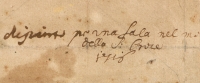 dipinse p una sala nel mo
dello di Croce
1715